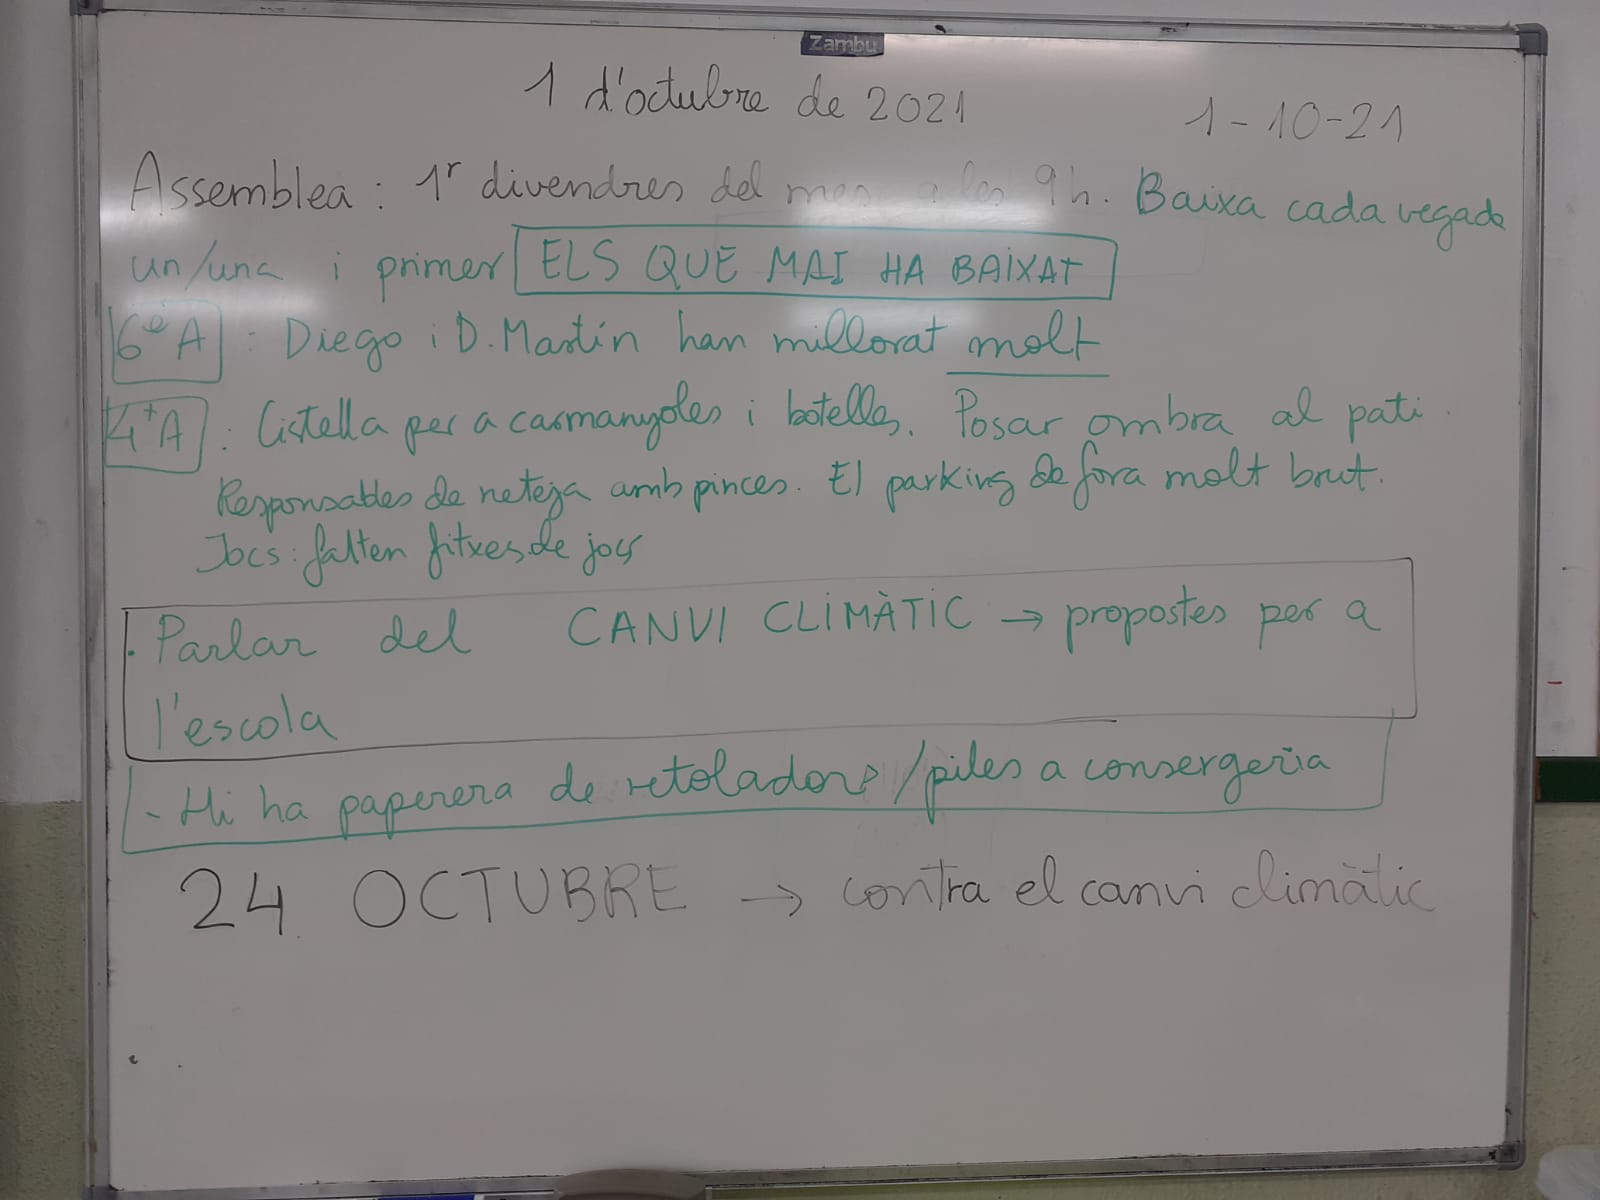 Zambu
1 d'octubre de 2021 1-10-21
Assemblea: 1r divendres del mes a les 9h. Baixa cada vegada
un/una i primer ELS QUE MAI HA BAIXAT
6è A : Diego i D. Martín han millorat molt
4t A : Cistella per a carmanyoles i botelles. Posar ombra al pati.
Responsables de neteja amb pinces. El parking de fora molt brut.
Jocs: falten fitxes de jocs
. Parlar del CANVI CLIMÀTIC → propostes per a
l'escola
- Hi ha paperera de retoladors/piles a consergeria
24 OCTUBRE → contra el canvi climàtic